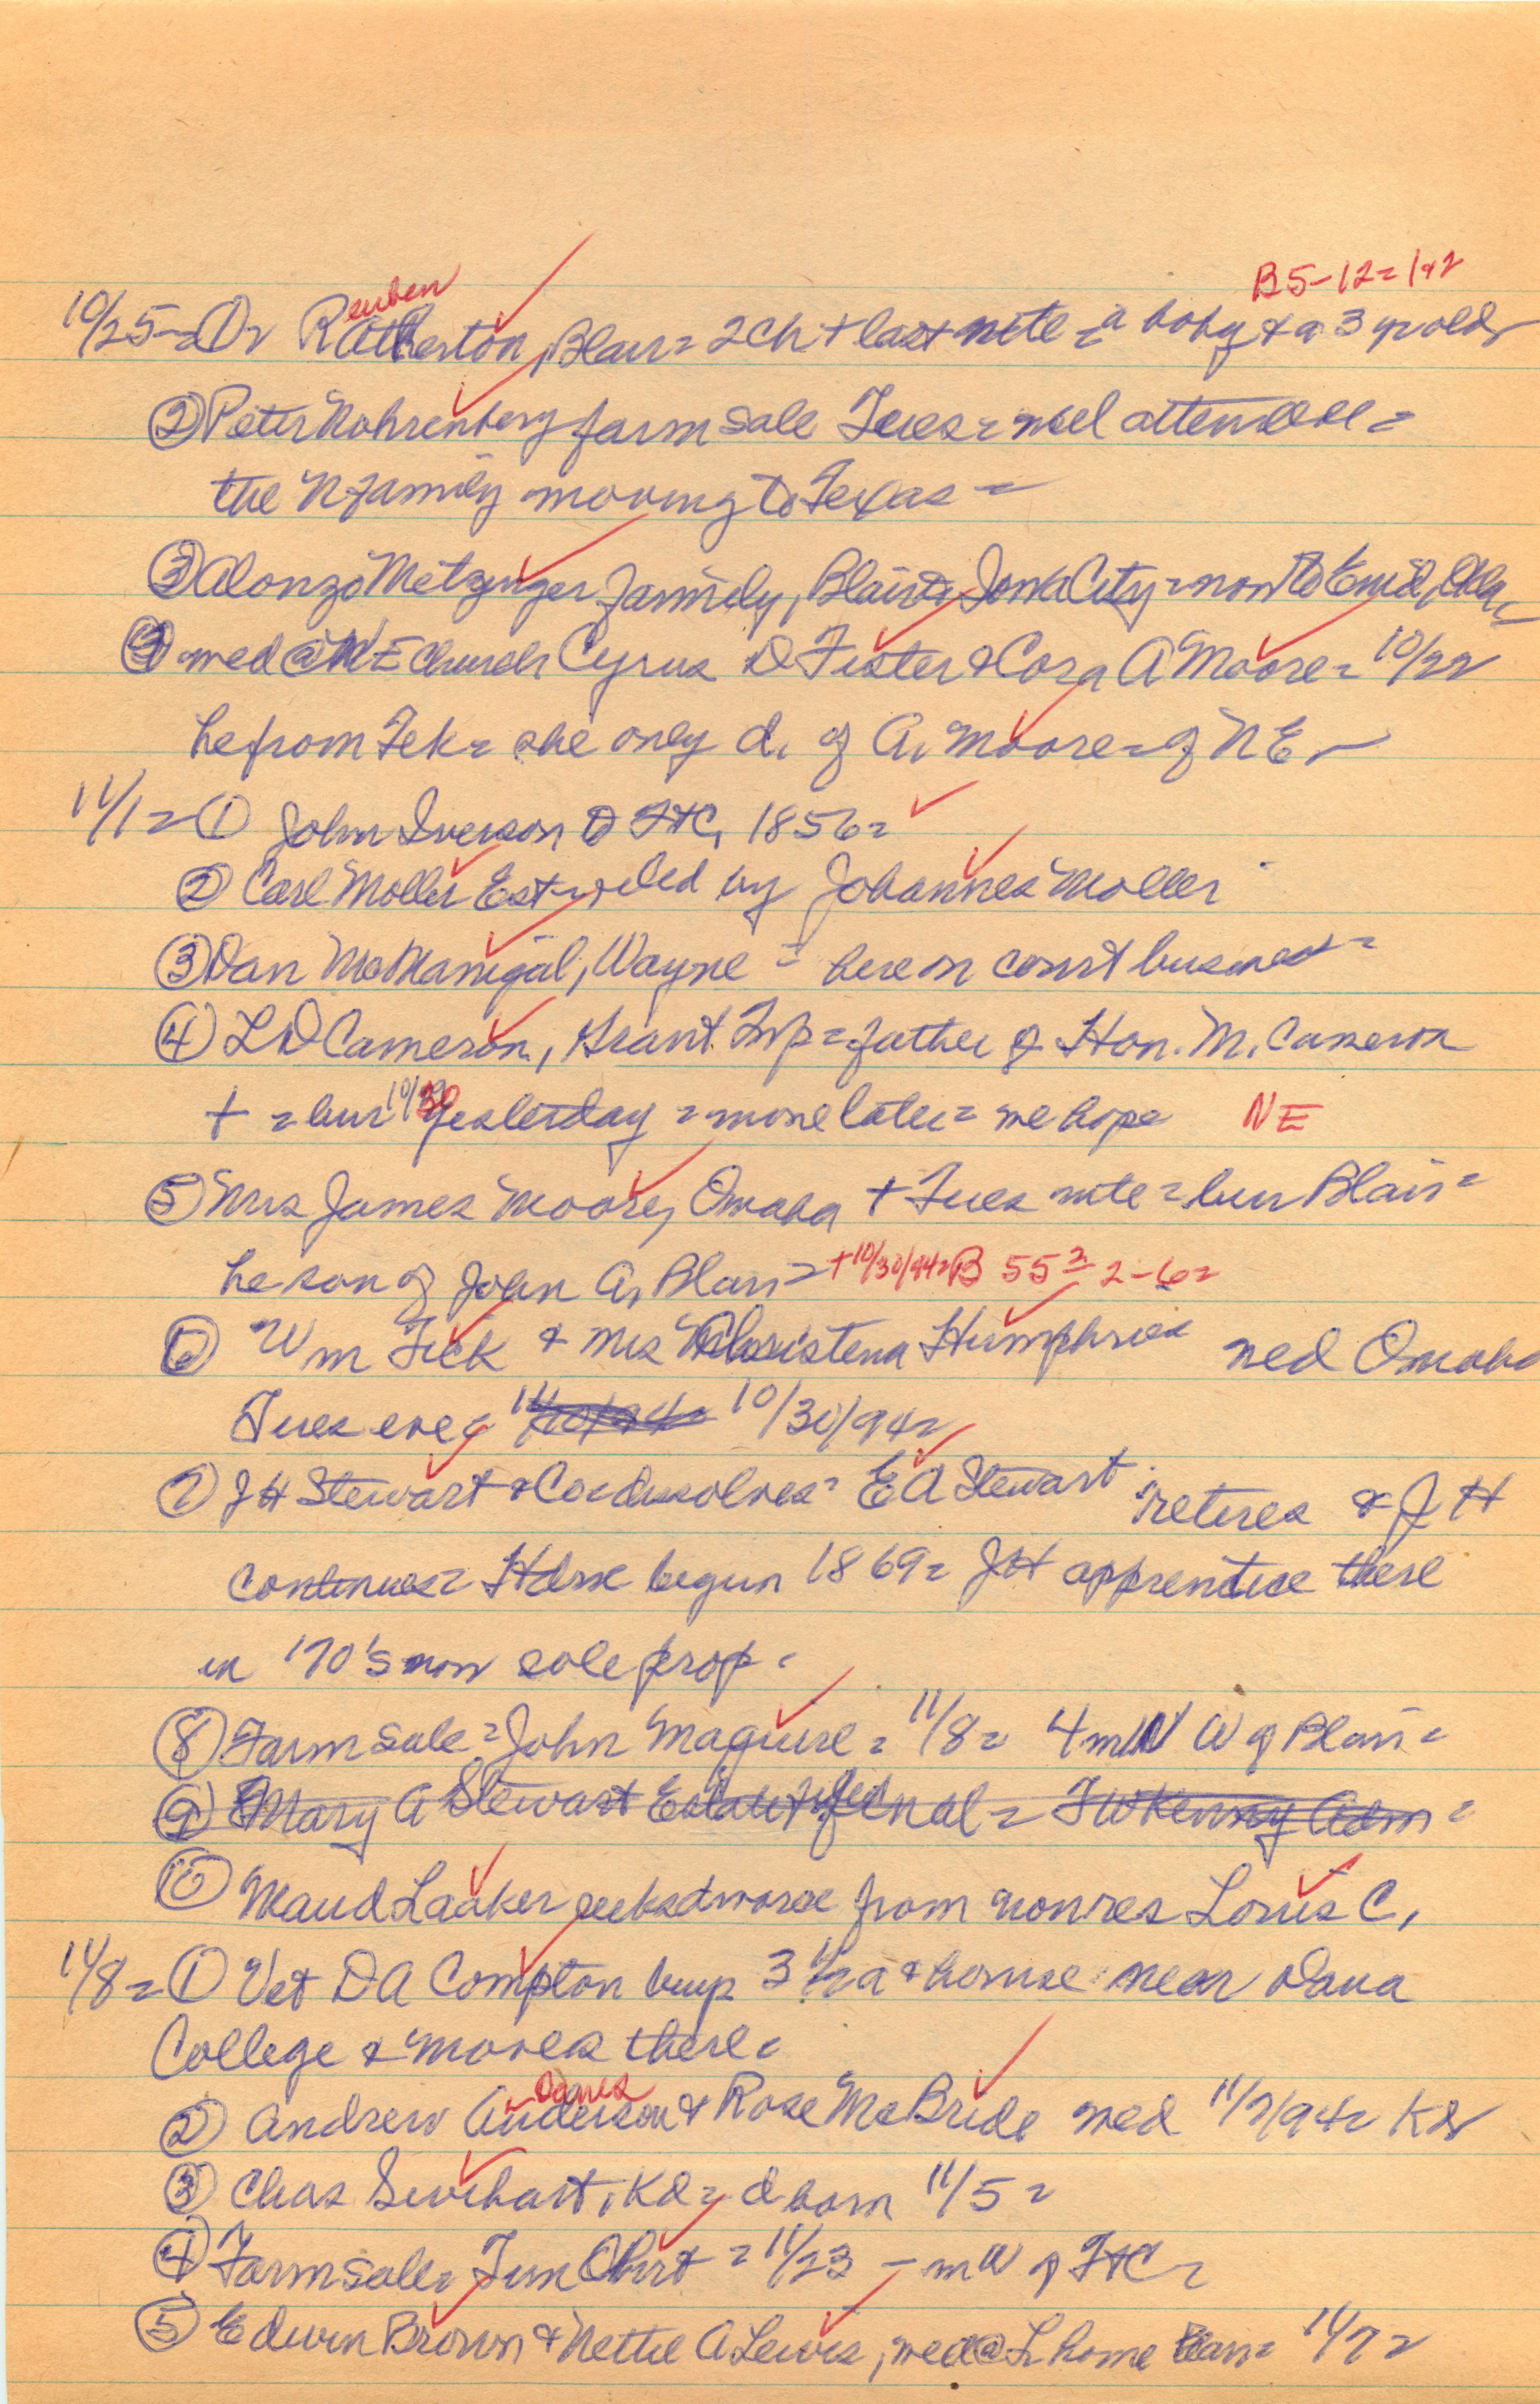 B5-12=1+2
euben
10/25=① R Atherton, Blair= 2 Ch + last nite = a baby & a 3 yr old
② Peter Nohrenberg farm sale Tues = well attended =
the N family moving to Texas =
③ Alonzo Metzinger family, Blair to Iowa City = now to Enid, Okla
④ wed @ ME Church Cyrus D Fister & Cora A Moore = 10/22
he from Tek = she only d. of A. Moore = of NE
11/1= ① John Iverson to FtC, 1856=
② Carl Moller Est filed by Johannes Moller
③ Dan McManigal, Wayne = here on court business =
④ L D Cameron, Grant Twp = father of Hon. M. Cameron
+ = bur 10/30 yesterday = more later = we hope NE
⑤ Mrs James Moore, Omaha + Tues nite = bur Blair =
he son of John A, Blair = +10/30/94= B 55= 2-6=
⑥ Wm Fick & Mrs Christena Humphries wed Omaha
Tues eve = 10/30/94=
⑦ J H Stewart & Co = dissolves = E A Stewart retires & J H
continues = Hdwe begun 1869= JH apprentice there
in '70's now sole prop =
⑧ Farm sale = John Maguire = 11/8= 4 m N W of Blair =
⑨ Mary A Stewart Estate final = F W Kenny Adm =
⑩ Maud Laaker seeks divorce from nonres Louis C,
11/8= ① Vet D A Compton buys 3 1/2 a & house near Dana
College & moves there =
② Andrew Anderson & Rose McBride wed 11/7/94= Kd
③ Chas Swihart, Kd = d born 11/5 =
④ Farm sale = Jim Obert = 11/23 - m W of FtC =
⑤ Edwin Brown & Nettie A Lewis, wed @ L home Blair = 11/7=